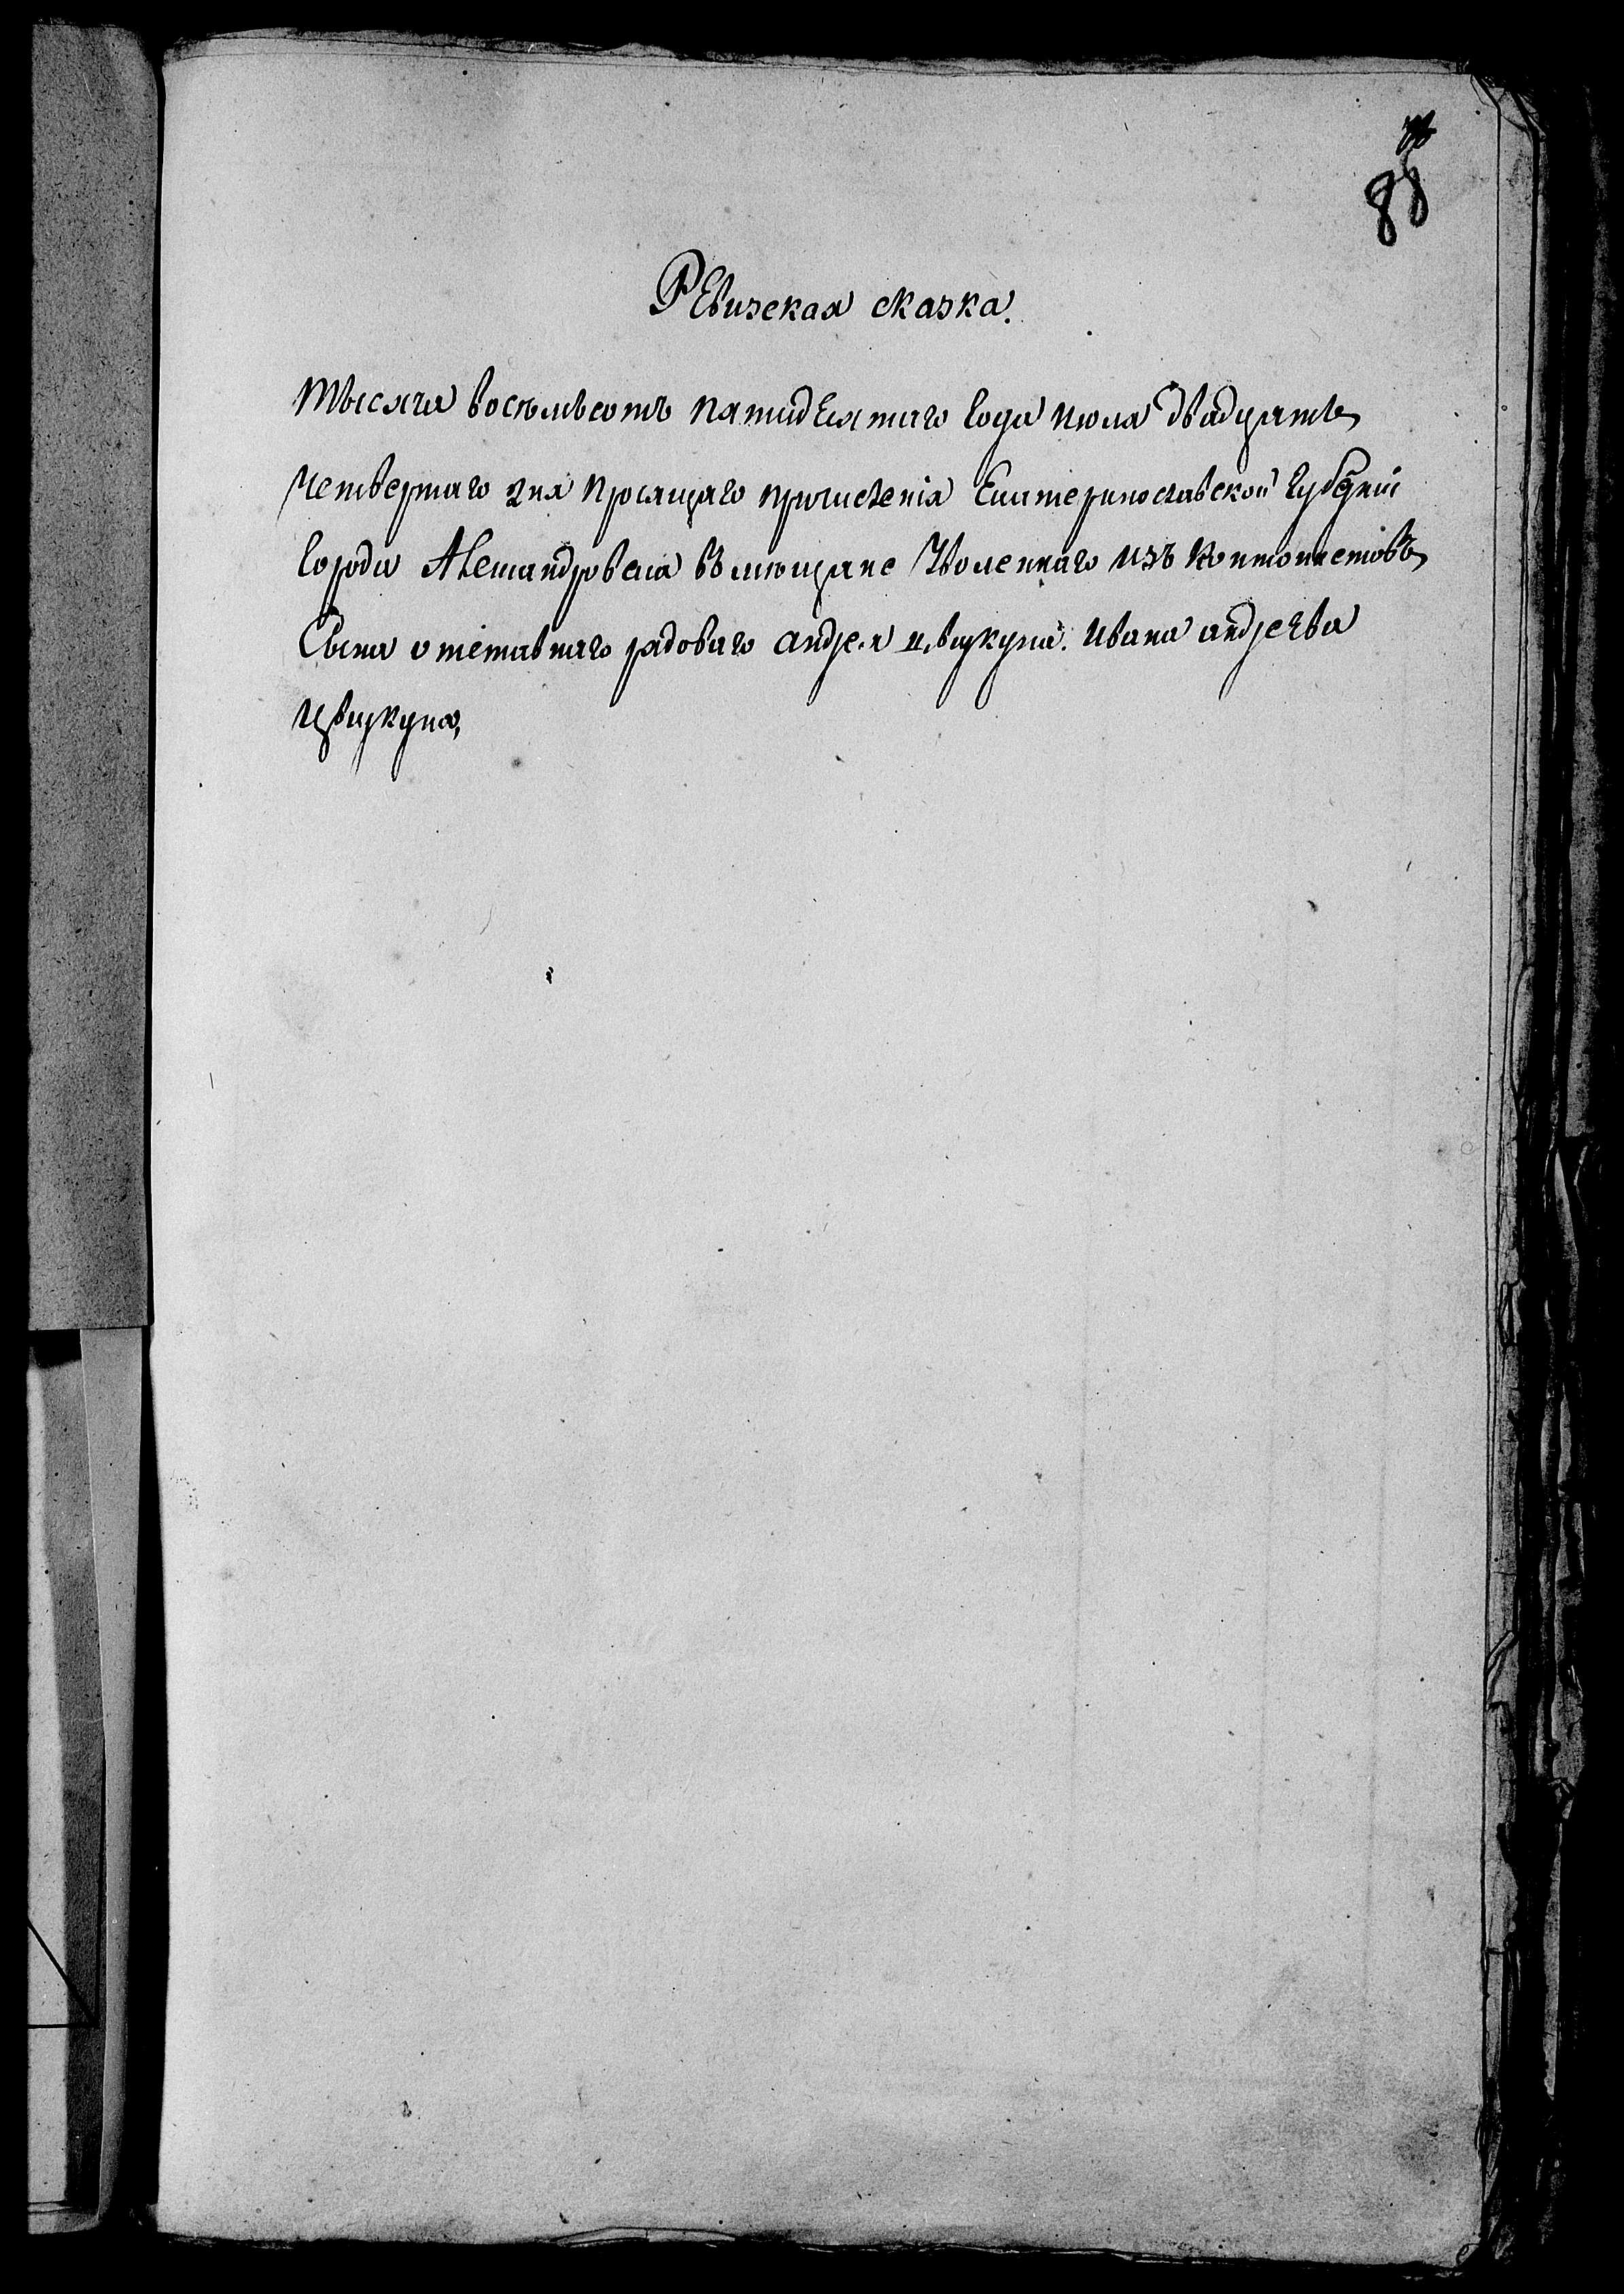 88
Ревизская сказка.
Тысяча восемьсотъ пятидесятаго года июля двадцать
четвертаго дня просящаго причисленія Екатеринославской Губерніи
города Алесандровска въ мющане Уволеннаго изъ Контонистовъ
Сына отставнаго рядоваго андрея Цвицкуна. Ивана андреева
Цвицкуна,